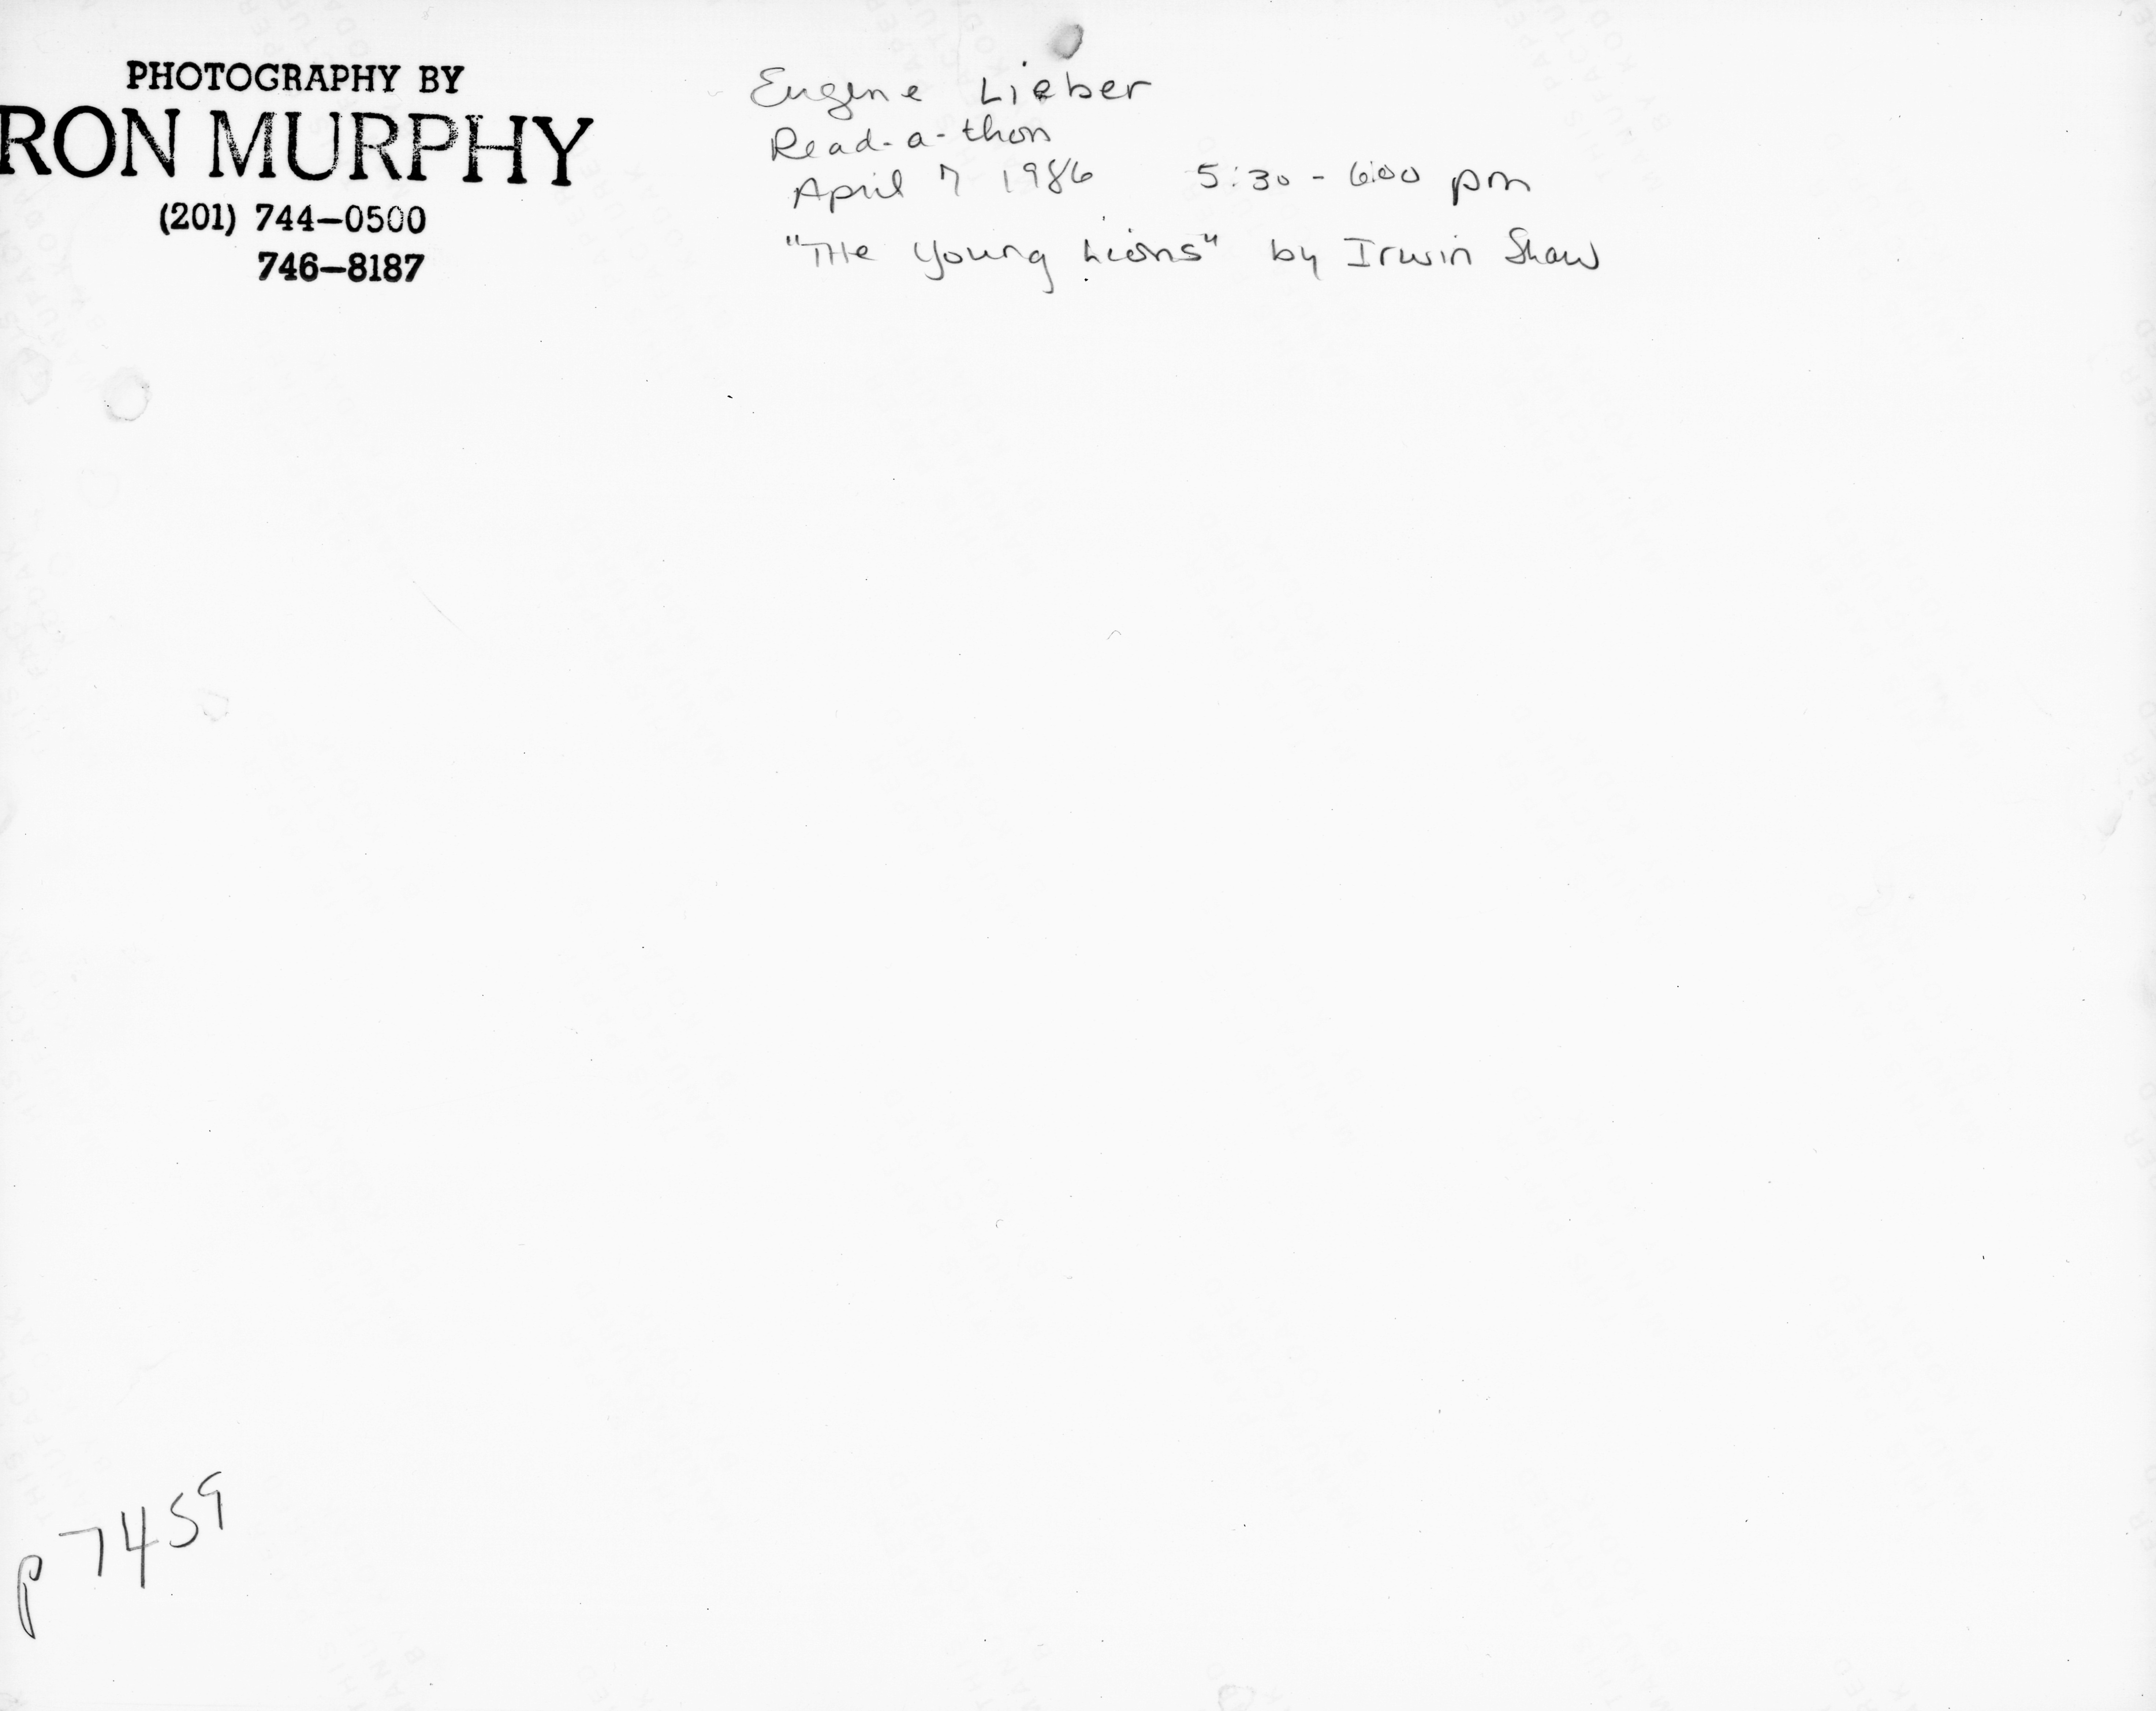 PHOTOGRAPHY BY
RON MURPHY
(201) 744-0500
746-8187
Eugene Lieber
Read-a-thon
April 7 1986 5:30 - 6:00 pm
"The Young Lions" by Irwin Shaw
p 7459